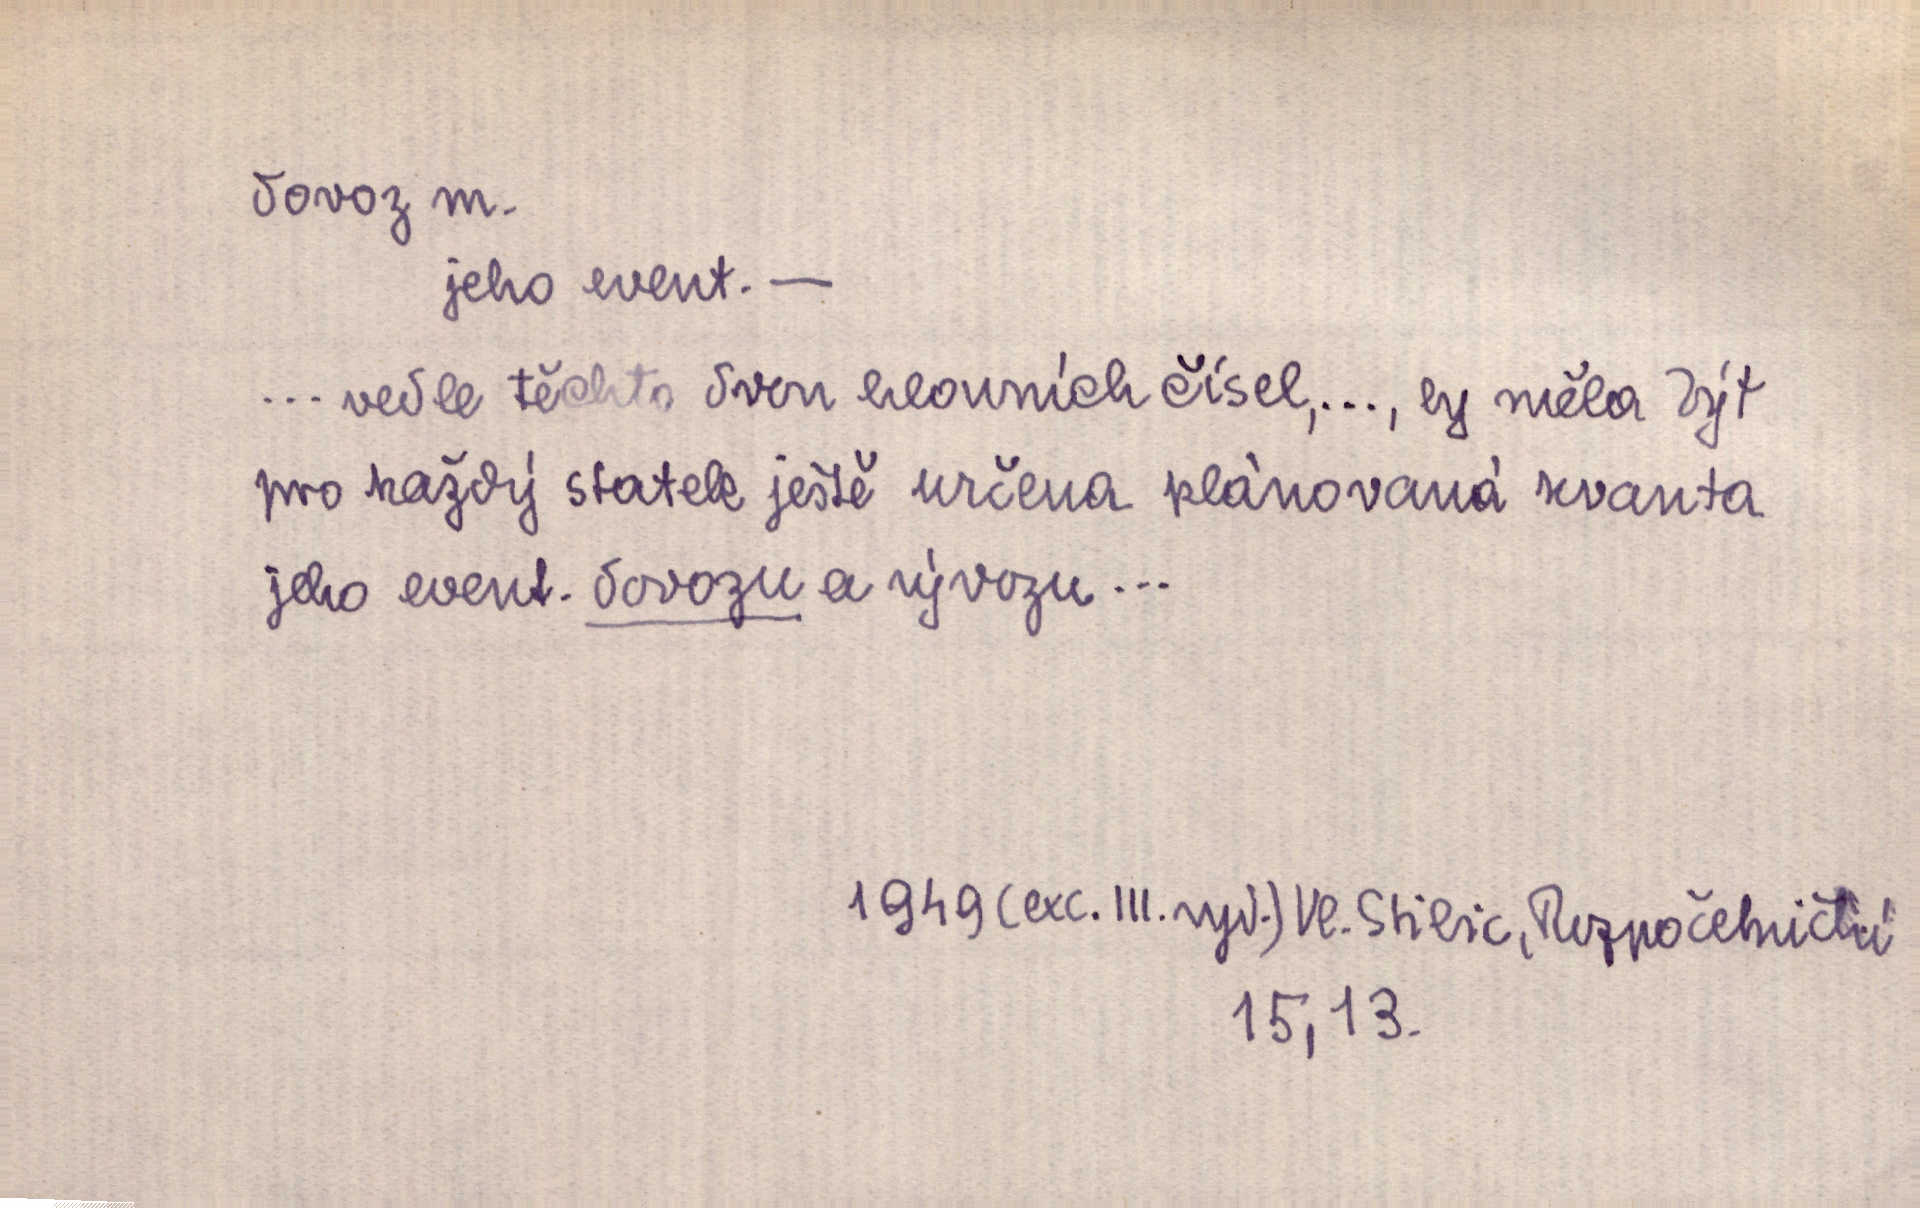 dovoz m.
jeho event. —
... vedle těchto dvou hlavních čísel, ..., by měla být
pro každý statek ještě určena plánovaná kvanta
jeho event. dovozu a vývozu ...
1949 (exc. III. vyd.) Vl. Stibic, Rozpočetnictví
15, 13.